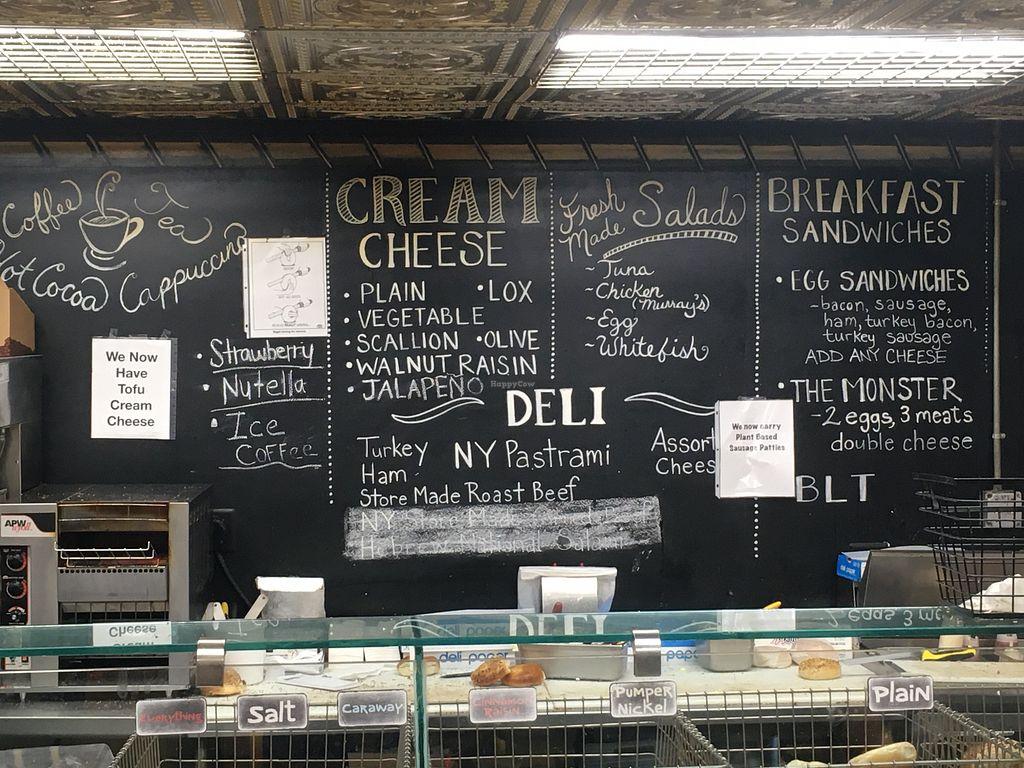 Coffee
Tea
Hot Cocoa
Cappuccino
We Now
Have
Tofu
Cream
Cheese
• Strawberry
• Nutella
• Ice
COFFee
CREAM
CHEESE
• PLAIN • LOX
• VEGETABLE
• SCALLION • OLIVE
• WALNUT RAISIN
• JALAPEÑO
HappyCow
Fresh
Made Salads
~Tuna
~Chicken
(Murray's)
~Egg
~Whitefish
DELI
Turkey NY Pastrami
Ham
Store Made Roast Beef
NY
Assort
Chees
We now carry
Plant Based
Sausage Patties
BREAKFAST
SANDWICHES
• EGG SANDWICHES
~bacon, sausage,
ham, turkey bacon,
turkey sausage
ADD ANY CHEESE
• THE MONSTER
~2 eggs, 3 meats
double cheese
BLT
APW
deli paper
EVERYTHING
Salt
CARAWAY
CINNAMON
RAISIN
PUMPER
NICKEL
Plain